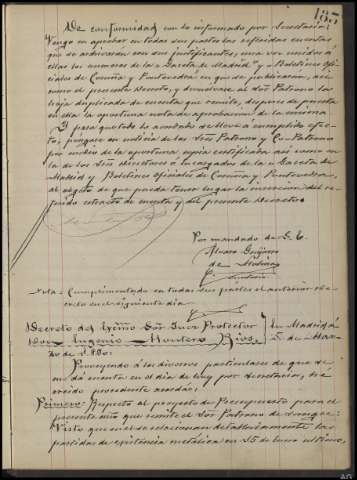 183
De conformidad con lo informado por Secretaría,
Vengo en aprobar en todas sus partes las referidas cuentas
que se archivarán con sus justificantes, una vez unidos á
ellas los números de la "Gaceta de Madrid" y "Boletines Ofi-
ciales de Coruña y Pontevedra en que se publicaren, así
como el presente Decreto, y devuélvase al Sor Patrono la
hoja duplicada de cuenta que remite, después de puesta
en ella la oportuna nota de aprobación de la misma.
Y para que todo lo acordado se lleve á cumplido efec-
to, póngase en noticia de los Sres Patrono y Co-Patrono
por medio de la oportuna copia certificada así como en
la de los Sres directores ó Encargados de la "Gaceta de
Madrid y Boletines Oficiales de Coruña y Pontevedra,
al objeto de que pueda tener lugar la inserción del re-
ferido extracto de cuenta y del presente Decreto.
Por mandado de S. E.
Alvaro
de
Nota = Cumplimentado en todas sus partes el anterior De-
creto en el siguiente día
Decreto del Exmo Sor Juez Protector
Don Eugenio Montero Rios
En Madrid á
5 de Mar-
zo de 1.880:
Proveyendo á los diversos particulares de que se
me dá cuenta en el día de hoy por Secretaría, he
creído procedente acordar:
Primero: Respecto al proyecto de Presupuesto para el
presente año que remite el Sor Patrono de
Visto que en él se relacionan detalladamente las
partidas de existencia metálica en 15 de Enero último,